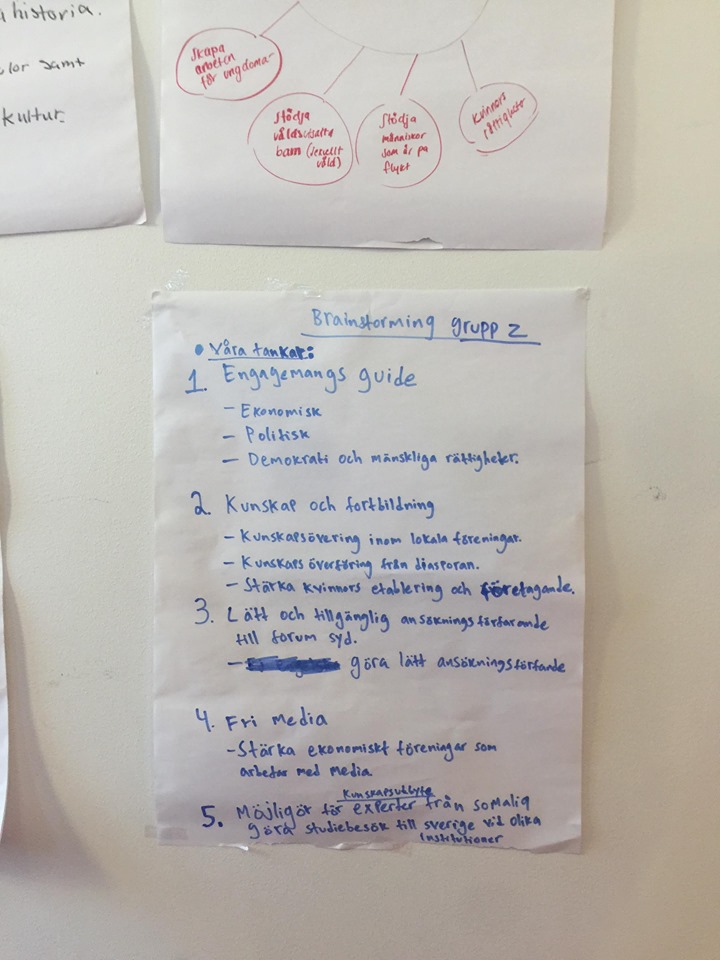 historia.
samt
kultur.
Skapa
arbeten
för ungdomar
Stödja
våldsutsatta
barn (sexuellt
våld)
Stödja
människor
som är på
flykt
Kvinnors
rättigheter
Brainstorming grupp 2
• Våra tankar:
1. Engagemangs guide
- Ekonomisk
- Politisk
- Demokrati och mänskliga rättigheter.
2. Kunskap och fortbildning
- Kunskapsövering inom lokala föreningar.
- Kunskaps överföring från diasporan.
- Stärka kvinnors etablering och företagande.
3. Lätt och tillgänglig ansöknings förfarande
till forum syd.
- göra lätt ansökningsförfande
4. Fri Media
- Stärka ekonomiskt föreningar som
arbetar med media.
Kunskapsutbyte
5. Möjligör för experter från somalia
göra studiebesök till sverige vid olika
institutioner